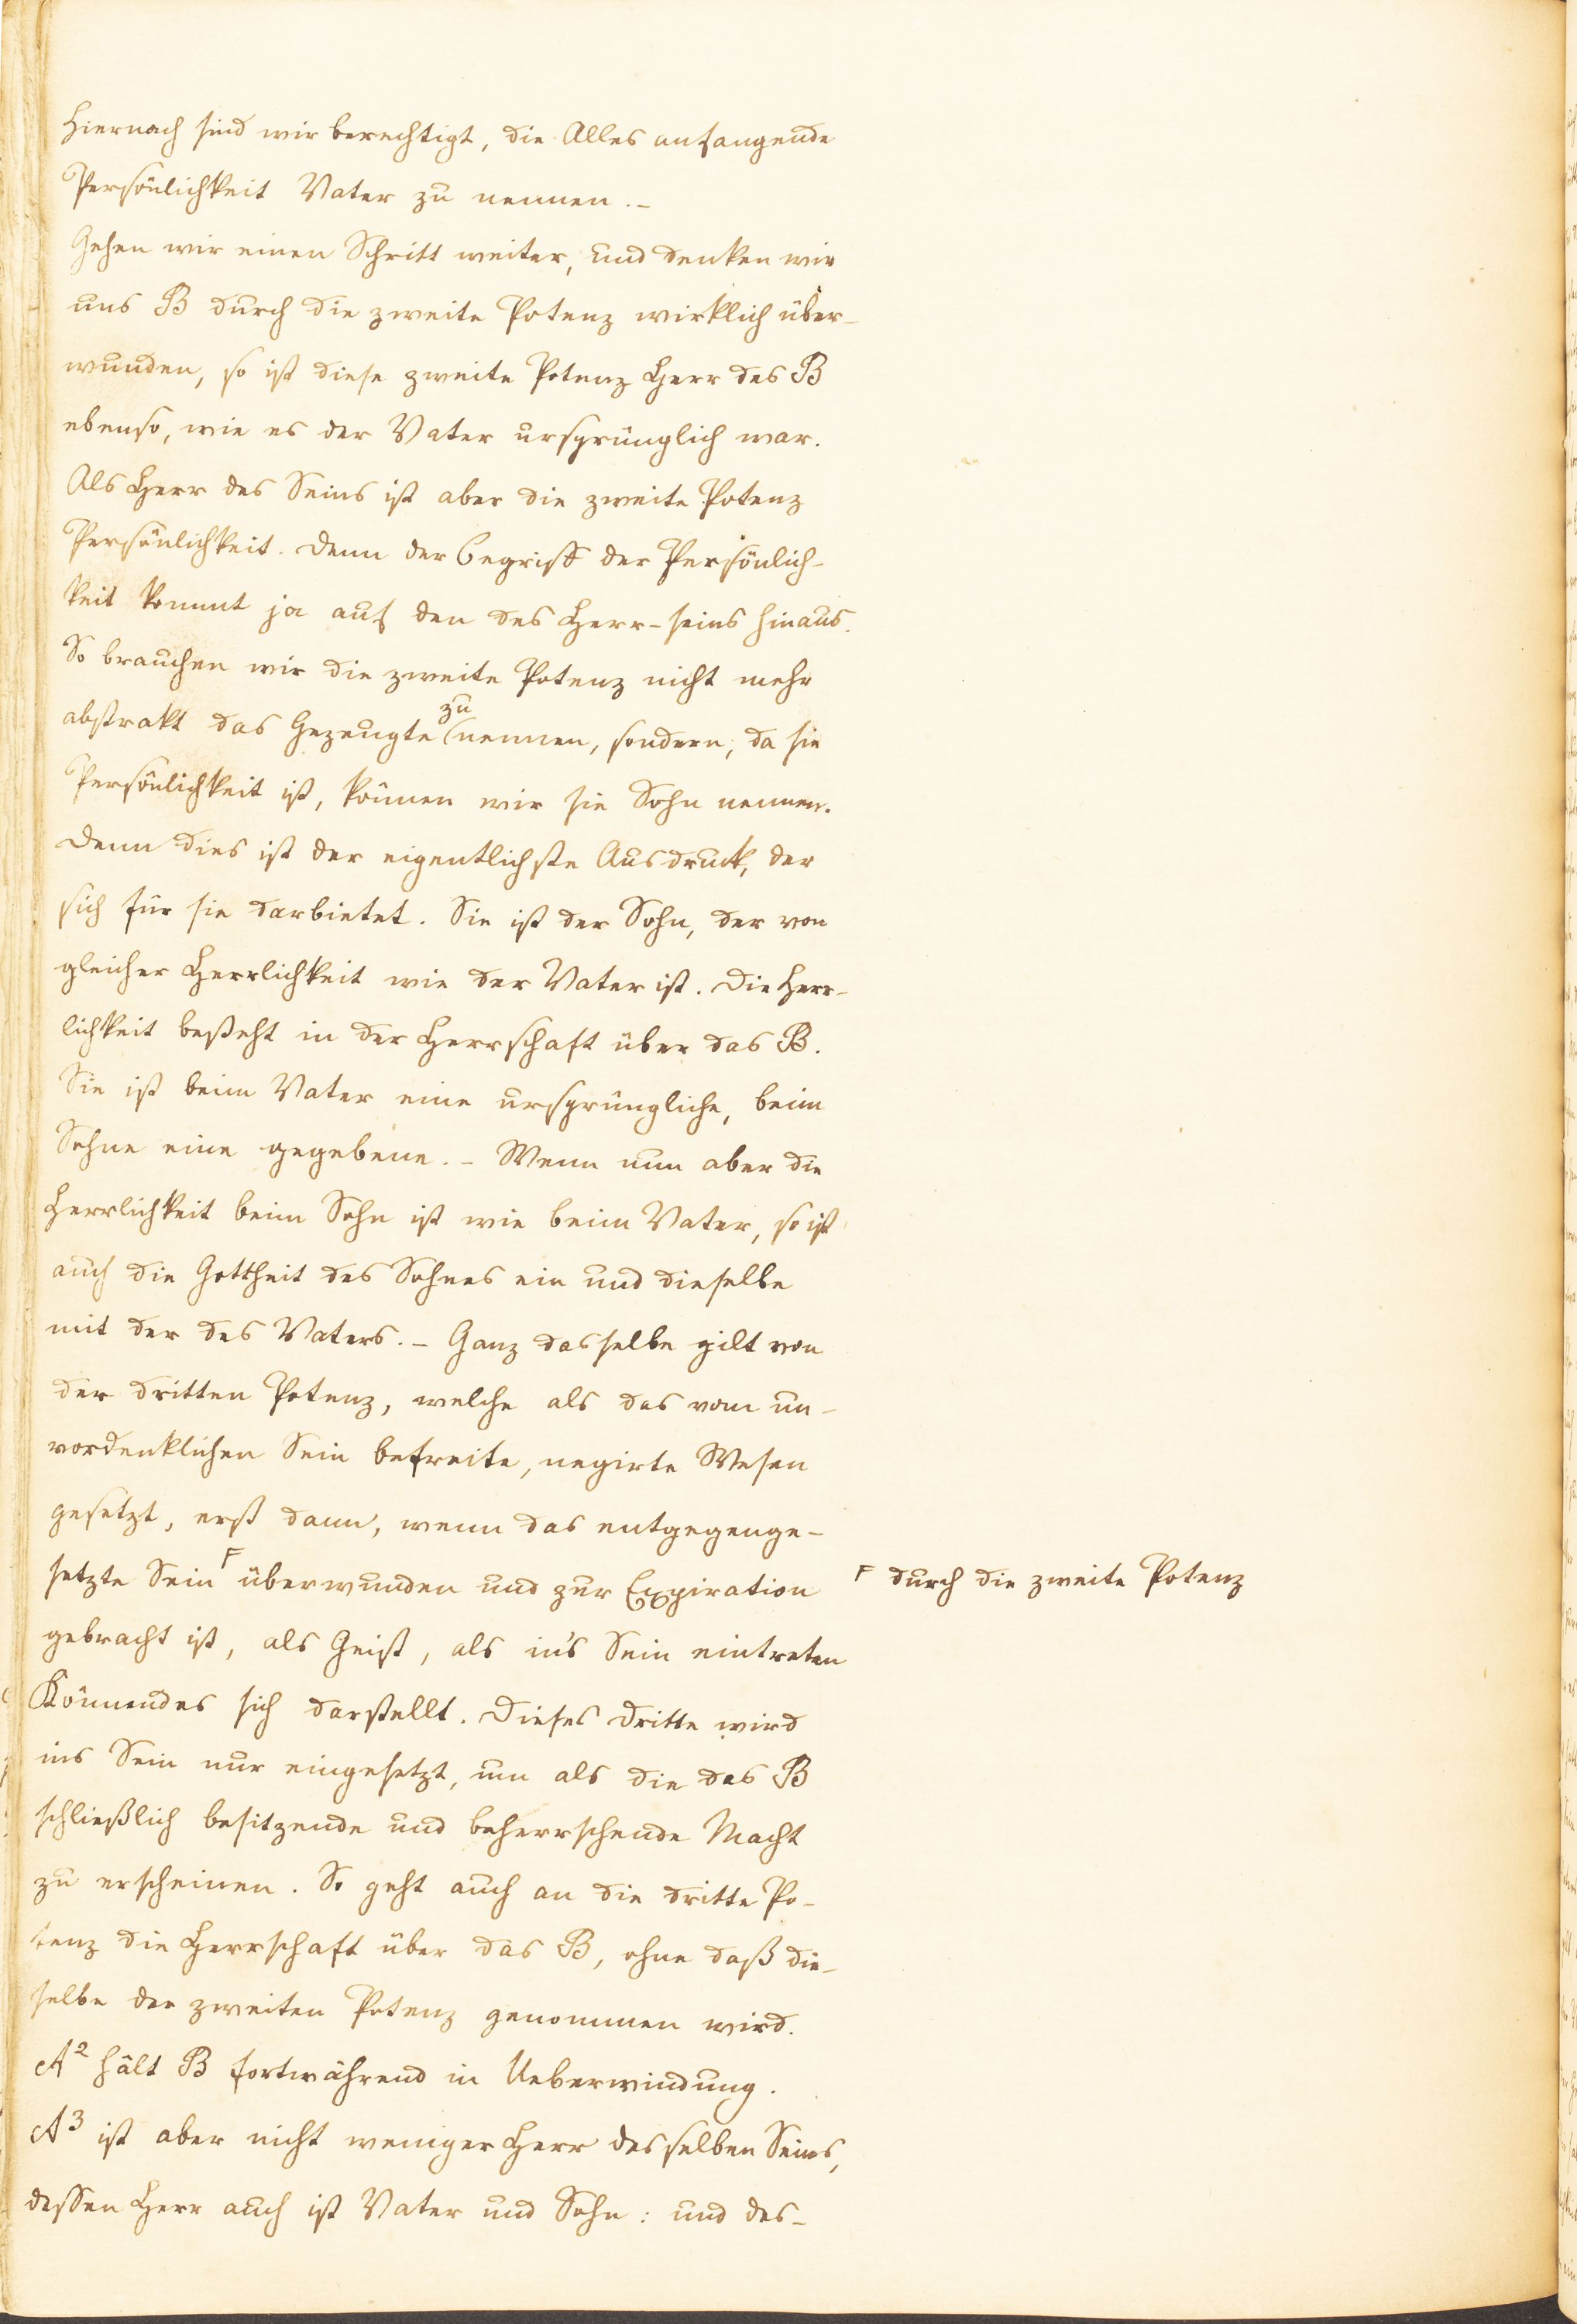 Hiernach sind wir berechtigt, die Alles anfangende
Persönlichkeit Vater zu nennen. –
Gehen wir einen Schritt weiter, und denken wir
uns B durch die zweite Potenz wirklich über-
wunden, so ist diese zweite Potenz Herr des B
ebenso, wie es der Vater ursprünglich war.
Als Herr des Seins ist aber die zweite Potenz
Persönlichkeit. Denn der Begriff der Persönlich-
keit kommt ja auf den des Herr-seins hinaus.
So brauchen wir die zweite Potenz nicht mehr
abstrakt das Gezeugte zu nennen, sondern, da sie
Persönlichkeit ist, können wir sie Sohn nennen.
Denn dies ist der eigentlichste Ausdruck, der
sich für sie darbietet. Sie ist der Sohn, der von
gleicher Herrlichkeit wie der Vater ist. Die Herr-
lichkeit besteht in der Herrschaft über das B.
Sie ist beim Vater eine ursprüngliche, beim
Sohne eine gegebene. – Wenn nun aber die
Herrlichkeit beim Sohn ist wie beim Vater, so ist
auch die Gottheit des Sohnes ein und dieselbe
mit der des Vaters. – Ganz dasselbe gilt von
der dritten Potenz, welche als das vom un-
vordenklichen Sein befreite, negirte Wesen
gesetzt, erst dann, wenn das entgegenge-
setzte Sein F überwunden und zur Expiration
F durch die zweite Potenz
gebracht ist, als Geist, als in's Sein eintreten
Könnendes sich darstellt. Dieses Dritte wird
ins Sein nur eingesetzt, um als die das B
schließlich besitzende und beherrschende Macht
zu erscheinen. So geht auch an die dritte Po-
tenz die Herrschaft über das B, ohne daß die-
selbe der zweiten Potenz genommen wird.
A² hält B fortwährend in Ueberwindung.
A³ ist aber nicht weniger Herr desselben Seins,
dessen Herr auch ist Vater und Sohn: und des-